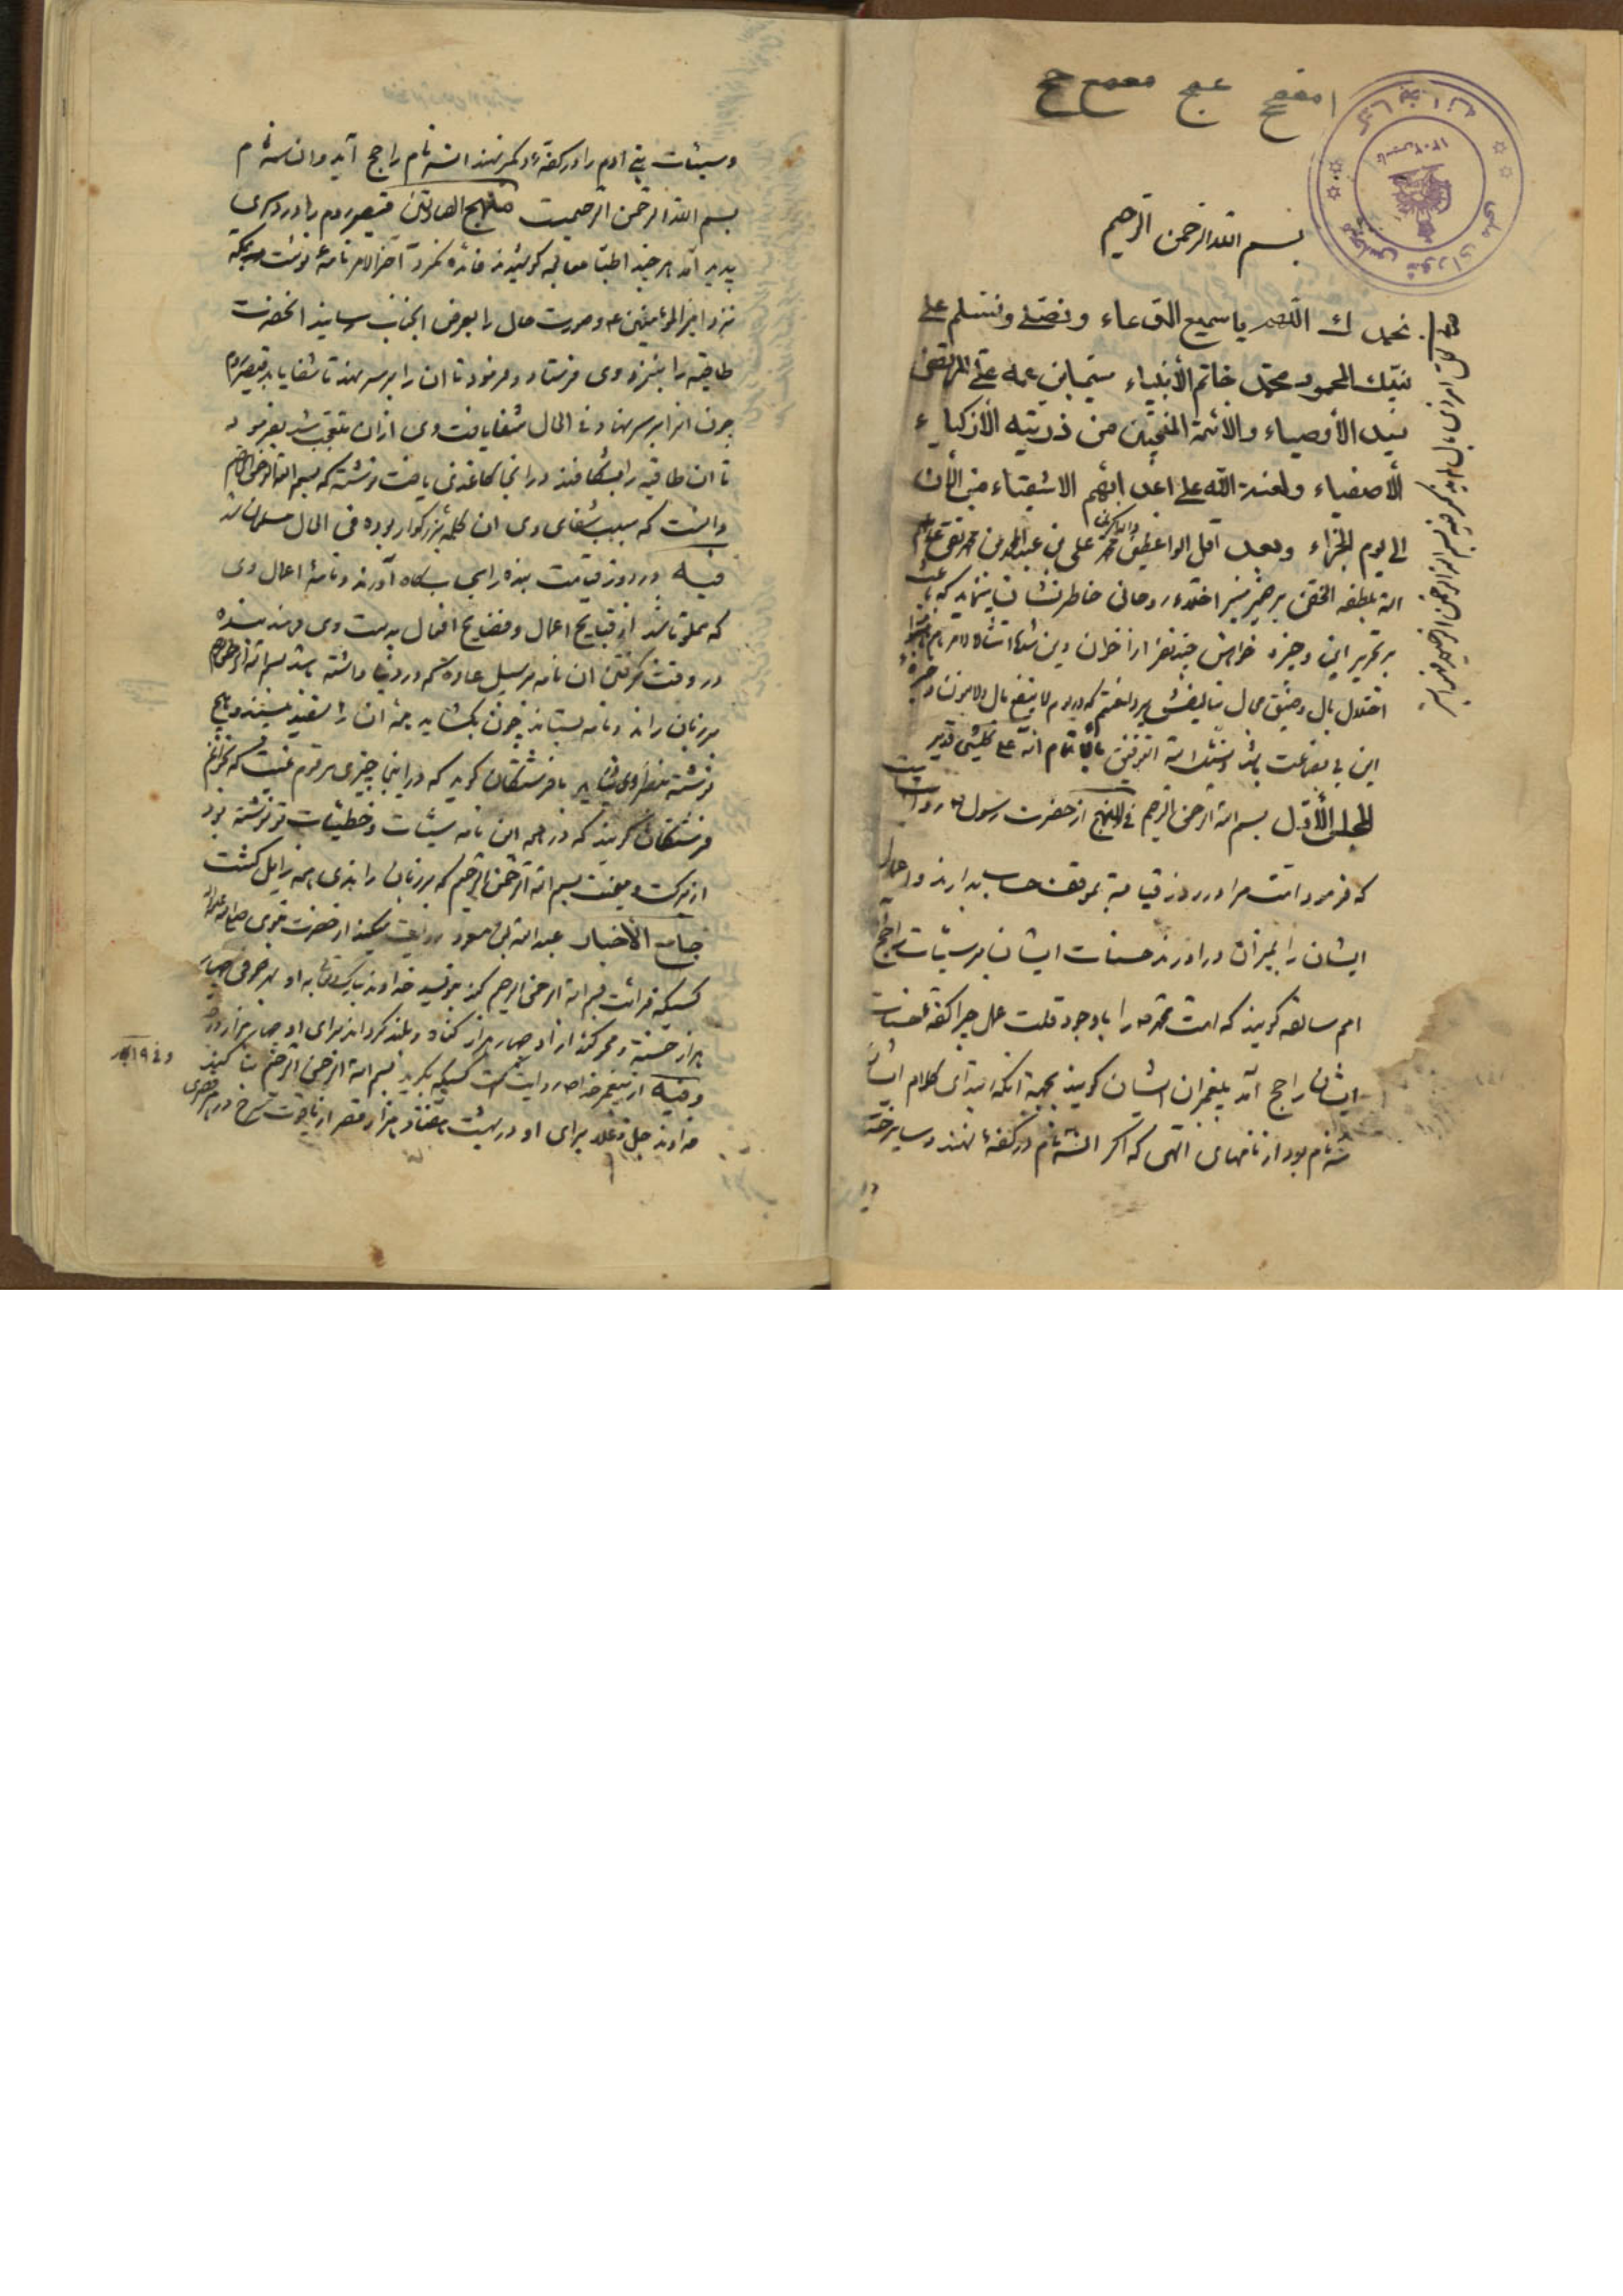 بسم الله الرحمن الرحیم
نحمدك اللهم یا سمیع الدعاء ونصلی ونسلم علی
نبیك المحمود محمد خاتم الأنبیاء سیما ابن عمه علی المرتضی
سید الأوصیاء والائمة المنتجبین من ذریته الأزکیاء
الأصفیاء ولعنة الله علی اعدائهم الاشقیاء من الأن
الی یوم الجزاء وبعد اقل الواعظین محمد علی بن محمد تقی
الله بلطفه الخفی بر ضمیر منیر اخلاء روحانی خاطر نشان مینماید که
بر تحریر این وجیزه خواهش چند نفر از اخوان دین
اختلال بال وضیق مجال بتالیفش پرداختم که در یوم لا ینفع مال ولا بنون
این بی بضاعت باشد ونسئل الله التوفیق بالاتمام انه علی کلشئ قدیر
المجلس الأول بسم الله الرحمن الرحیم فی المنهج از حضرت رسول ص روایت
که فرمود امت مرا در روز قیامة بموقف حساب بدارند واعمال
ایشان را بمیزان در اورند حسنات ایشان بر سیئات راجح
امم سابقه گویند که امت محمد ص را با وجود قلت عمل چرا کفه حسنات
ایشان راجح آمد پیغمبران ایشان گویند بجهة آنکه ابتدای کلام ایشان
سه نام بود از نامهای الهی که اگر انسه نام در کفهٔ نهند و سایر
وسیئات بنی ادم را در کفهٔ دیگر نهند انسه نام راجح آید وان سه نام
بسم الله الرحمن الرحیمست منهج الصادقین قیصر روم را درد سری
پدید آمد هر چند اطبا معالجه کوشیدند فائده نکرد آخر الامر نامهٔ نوشت
نزد امیر المؤمنین ع وصورت حال را بعرض انجناب رسانید انحضرت
طاقیه را بنزد وی فرستاد وفرمود تا ان را بر سر نهد تا شفا یابد قیصر روم
چون انرا بر سر نهاد فی الحال شفا یافت وی از ان متعجب شد بفرمود
تا ان طاقیه را بشکافند در انجا کاغذی یافت نوشته که بسم الله الرحمن الرحیم
دانست که سبب شفای وی ان کلمه بزرکوار بوده فی الحال مسلمان شد
وفیه در روز قیامت بنده را بحسابگاه آورند ونامهٔ اعمال وی
که مملو باشد از قبایح اعمال وفضایح افعال بدست وی دهند بنده
در وقت گرفتن ان نامه بر سبیل عادة که در دنیا داشته باشد بسم الله الرحمن الرحیم
بر زبان راند ونامه بستاند چون بکشاید همه ان را سفید بیند وهیچ
نوشته بنظر وی نیاید با فرشتگان گوید که در اینجا چیزی مرقوم نیست که بخوانم
فرشتگان گویند که در همه این نامه سیئات وخطیئات تو نوشته بود
از برکت ومیمنت بسم الله الرحمن الرحیم که بر زبان راندی همه زایل گشت
جامع الأخبار عبد الله بن مسعود روایت میکند از حضرت نبوی
کسیکه قرائت بسم الله الرحمن الرحیم کند بنویسد خداوند تبارک وتعالی به او بهر حرفی چهار
هزار حسنة ومحو کند از او چهار هزار گناه وبلند گرداند برای او چهار هزار درجه
وفیه از پیغمبر خدا ص روایت است کسیکه بگوید بسم الله الرحمن الرحیم بنا کند
خداوند جل وعلا برای او در بهشت هفتاد هزار قصر از یاقوت سرخ در هر قصری